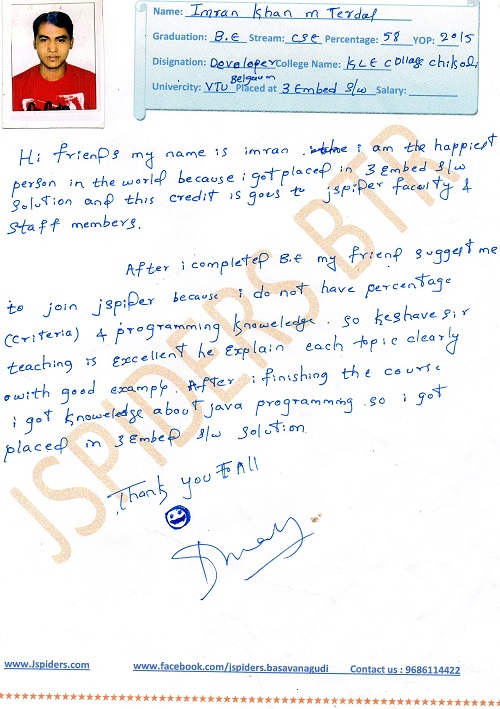 Name: Imran Khan m Terdal
Graduation: B.E Stream: CSE Percentage: 58 YOP: 2015
Disignation: Developer College Name: KLE college chikodi
Belgaum
Univercity: VTU Placed at 3 Embed S/w Salary:
Hi friends my name is imran. i am the happiest
person in the world because i got placed in 3 Embed S/w
solution and this credit is goes to jspider faculty &
staff members.
After i completed B.E my friend suggest me
to join jspider because i do not have percentage
(criteria) & programming knoweledge. so keshave sir
teaching is Excellent he Explain each topic clearly
with good example. After i finishing the course
i got knoweledge about java programming. so i got
placed in 3 Embed S/w solution
Thank you All
JSPIDERS BTR
www.Jspiders.com www.facebook.com/jspiders.basavanagudi Contact us : 9686114422